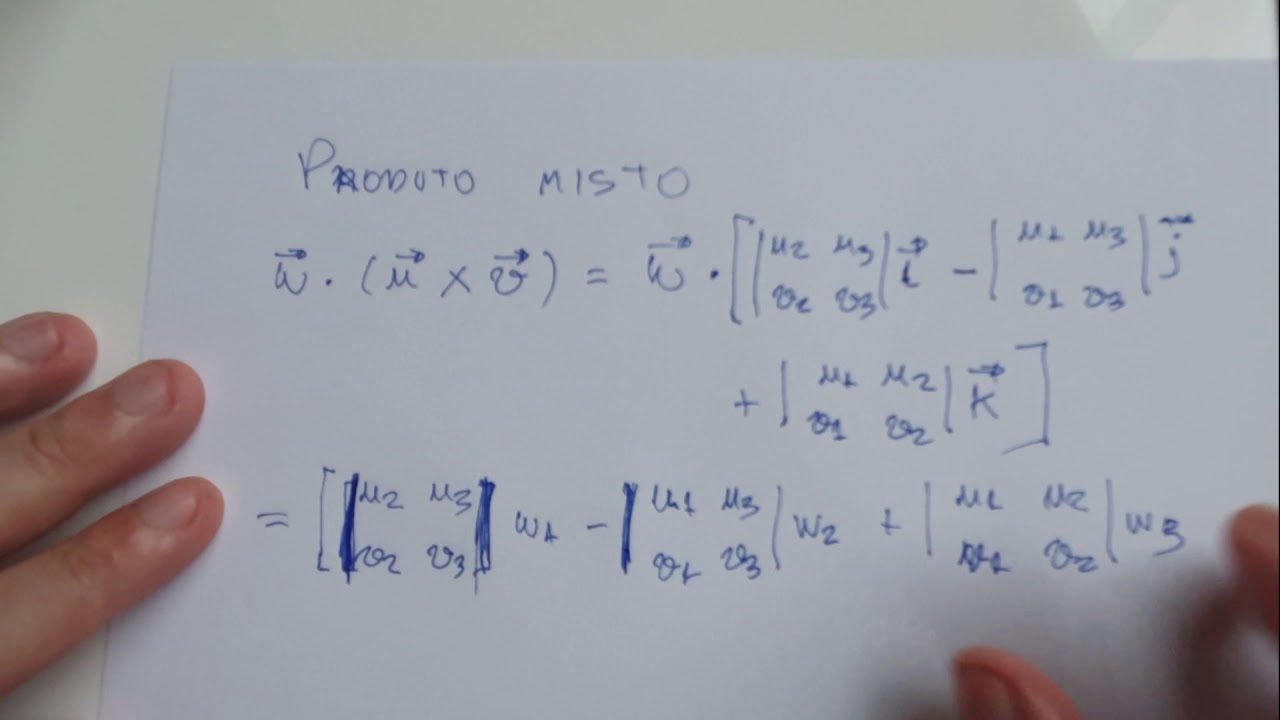 PRODUTO MISTO
w⃗ · (u⃗ × v⃗) = w⃗ · [|u2 u3; v2 v3| i⃗ − |u1 u3; v1 v3| j⃗
+ |u1 u2; v1 v2| k⃗]
= [|u2 u3; v2 v3| w1 − |u1 u3; v1 v3| w2 + |u1 u2; v1 v2| w3